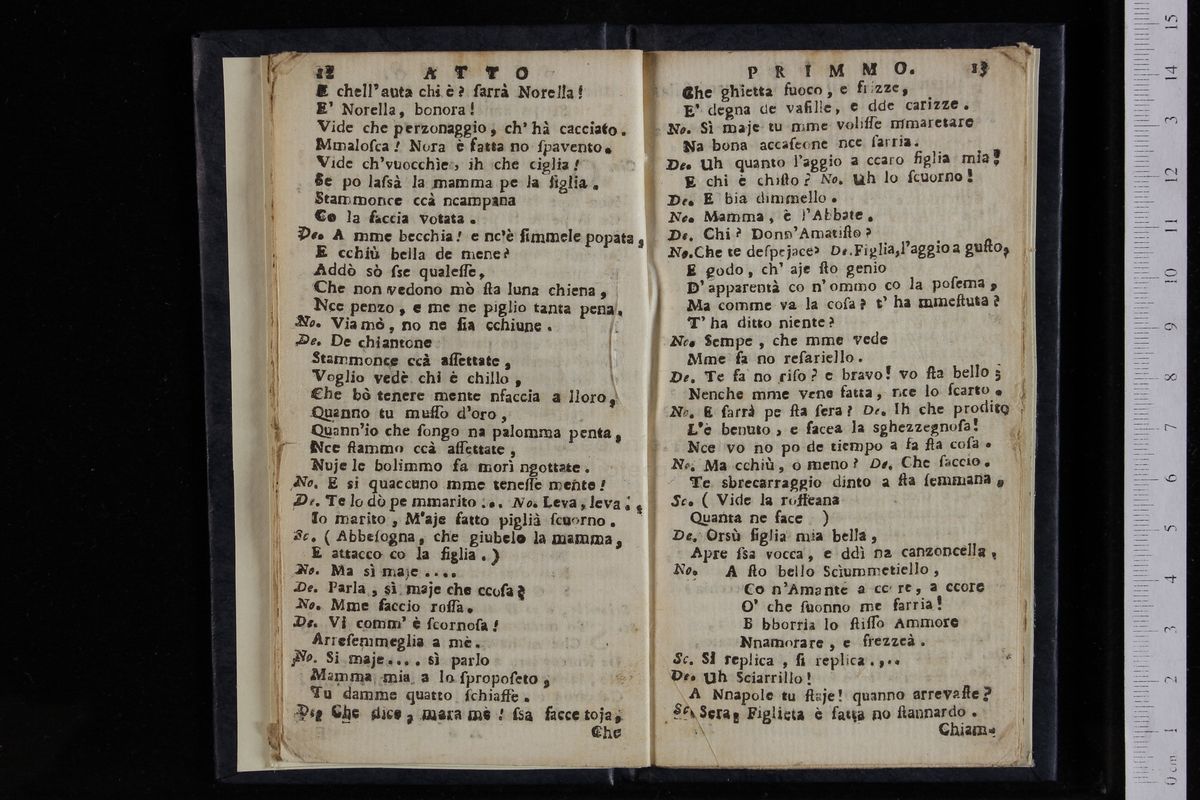 12 ATTO
E chell'auta chi è? sarrà Norella!
E' Norella, bonora!
Vide che perzonaggio, ch'hà cacciato.
Mmalosca! Nora è fatta no spavento.
Vide ch'vuocchie, ih che ciglia!
Se po lassà la mamma pe la figlia.
Stammonce ccà ncampana
Co la faccia votata.
De. A mme becchia! e nc'è simmele popata,
E cchiù bella de mene?
Addò sò sse qualesse,
Che non vedono mò sta luna chiena,
Nce penzo, e me ne piglio tanta pena.
No. Via mò, no ne sia cchiune.
De. De chiantone
Stammonce ccà assettate,
Voglio vedè chi è chillo,
Che bò tenere mente nfaccia a lloro,
Quanno tu musso d'oro,
Quann'io che songo na palomma penta,
Nce stammo ccà assettate,
Nuje le bolimmo fa morì ngottate.
No. E si quaccuno mme tenesse mente!
De. Te lo dò pe mmarito ... No. Leva, leva.
Io marito, M'aje fatto piglià scuorno.
Sc. ( Abbesogna, che giubelo la mamma,
E attacco co la figlia. )
No. Ma sì maje ....
De. Parla, sì maje che ccosa?
No. Mme faccio rossa.
De. Vi comm'è scornosa!
Arresemmeglia a mè.
No. Si maje.... sì parlo
Mamma mia a lo sproposeto,
Tu damme quatto schiaffe.
De. Che dice, mara mè! ssa facce toja,
Che
PRIMMO. 13
Che ghietta fuoco, e frizze,
E' degna de vasille, e dde carizze.
No. Sì maje tu mme volisse mmaretare
Na bona accaseone nce sarria.
De. Uh quanto l'aggio a ccaro figlia mia!
E chi è chisto? No. Uh lo scuorno!
De. E bia dimmello.
No. Mamma, è l'Abbate.
De. Chi? Donn'Amatisto?
No. Che te despejace? De. Figlia, l'aggio a gusto,
E godo, ch'aje sto genio
D'apparentà co n'ommo co la posema,
Ma comme va la cosa? t'ha mmestuta?
T'ha ditto niente?
No. Sempe, che mme vede
Mme fa no resariello.
De. Te fa no riso? e bravo! vo sta bello;
Nenche mme vene fatta, nce lo scarto.
No. E sarrà pe sta sera? De. Ih che prodito
L'è benuto, e facea la sghezzegnosa!
Nce vo no po de tiempo a fa sta cosa.
No. Ma cchiù, o meno? De. Che saccio.
Te sbrecarraggio dinto a sta semmana,
Sc. ( Vide la roffeana
Quanta ne face )
De. Orsù figlia mia bella,
Apre ssa vocca, e ddì na canzoncella,
No. A sto bello Sciummetiello,
Co n'Amante a ccore, a ccore
O' che suonno me farria!
E bborria lo stisso Ammore
Nnamorare, e frezzeà.
Sc. Si replica, si replica....
De. Uh Sciarrillo!
A Nnapole tu staje! quanno arrevaste?
Sc. Sera, Figlieta è fatta no stannardo.
Chiam-
0 cm 1 2 3 4 5 6 7 8 9 10 11 12 13 14 15